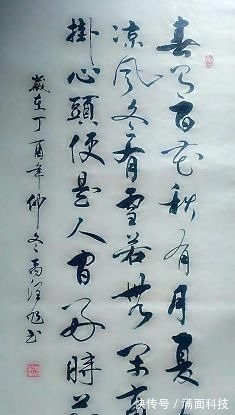 春有百花秋有月夏
涼風冬有雪若無閑事
掛心頭便是人間好時節
歲在丁酉年仲冬
快传号 / 满面科技